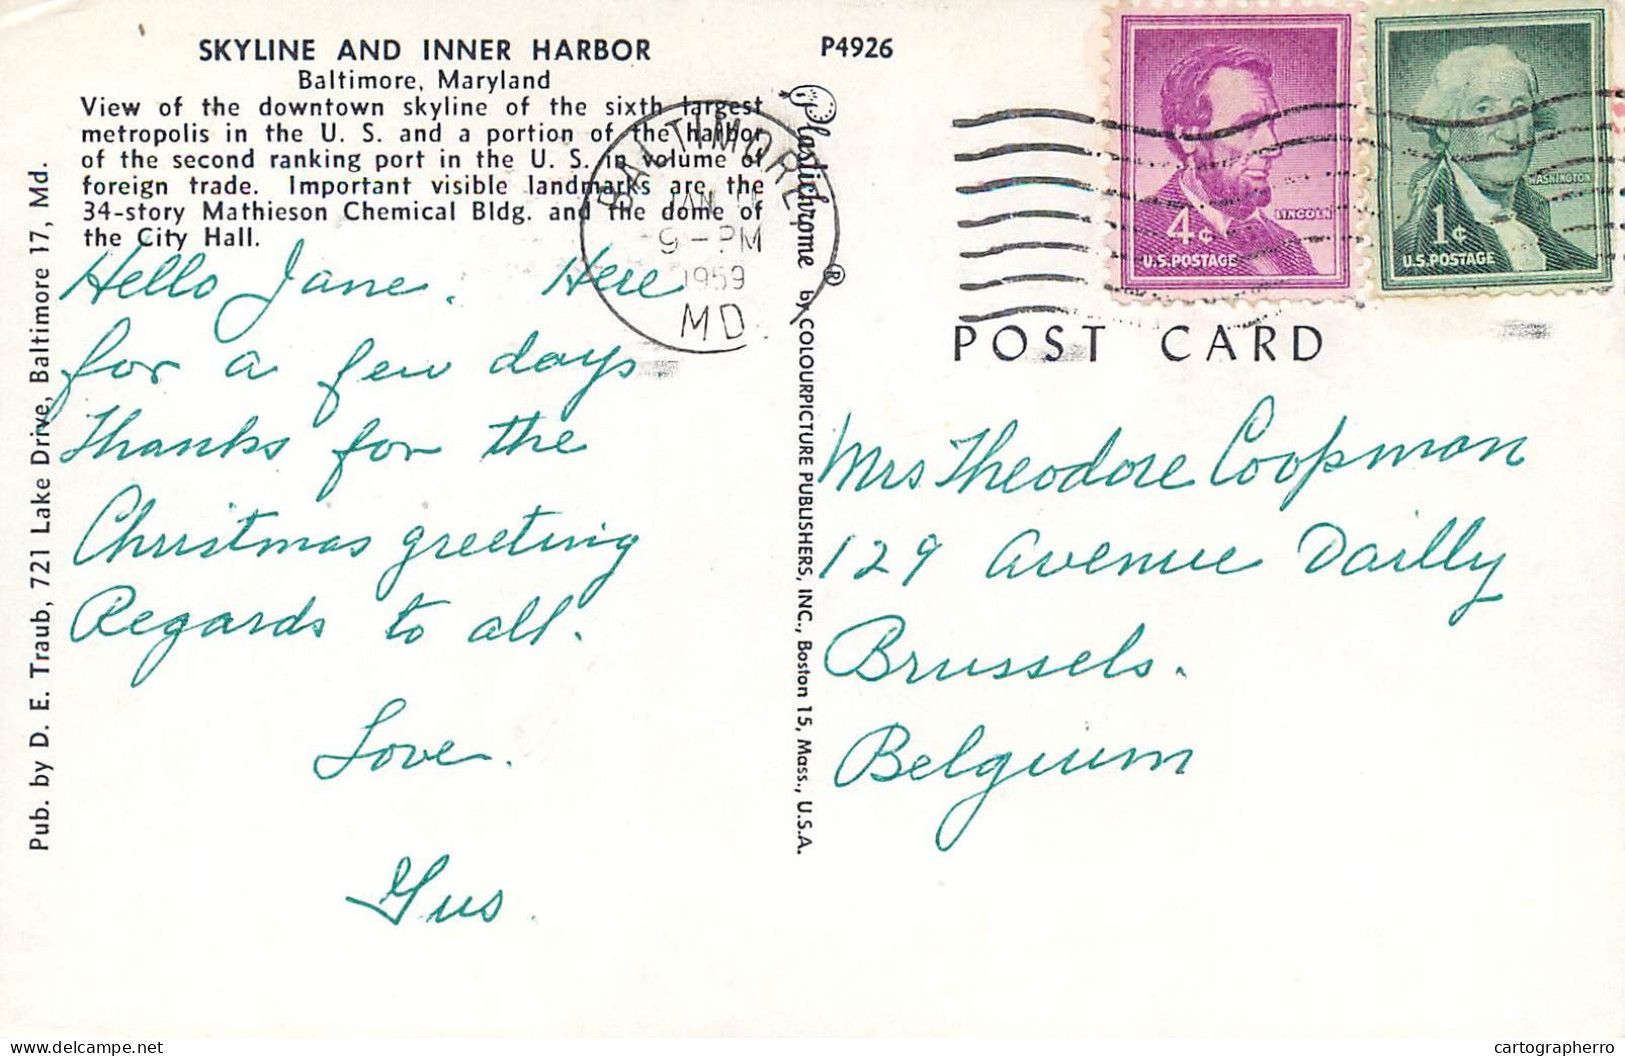 SKYLINE AND INNER HARBOR
Baltimore, Maryland
View of the downtown skyline of the sixth largest
metropolis in the U. S. and a portion of the harbor
of the second ranking port in the U. S. in volume of
foreign trade. Important visible landmarks are, the
34-story Mathieson Chemical Bldg. and the dome of
the City Hall.
Hello Jane. Here
for a few days
Thanks for the
Christmas greeting
Regards to all.
Love.
Gus.
Pub. by D. E. Traub, 721 Lake Drive, Baltimore 17, Md.
BALTIMORE
JAN
9-PM
1959
MD.
Plastichrome ® by COLOURPICTURE PUBLISHERS, INC., Boston 15, Mass., U.S.A.
P4926
LINCOLN
4¢
U.S.POSTAGE
WASHINGTON
1¢
U.S.POSTAGE
POST CARD
Mrs Theodore Coopman
129 Avenue Dailly
Brussels.
Belgium
delcampe.net
cartographerro